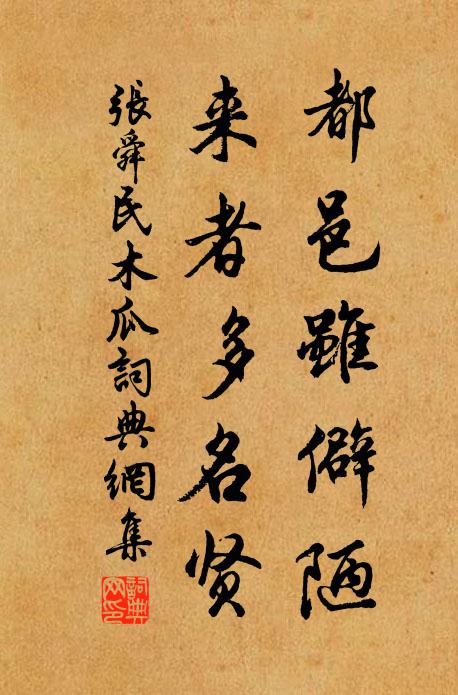 都邑雖僻陋
来者多名贤
張舜民木瓜詞典網集
詞典网印